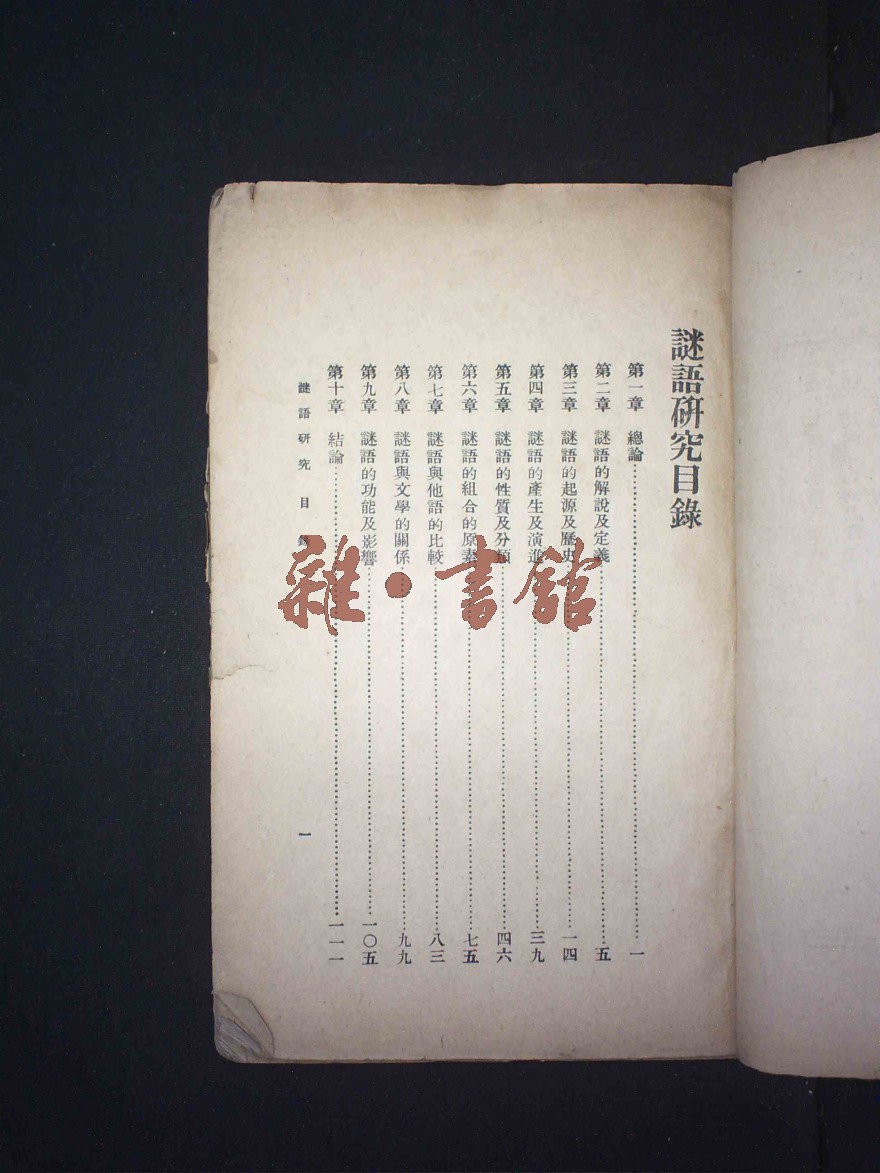 謎語研究目錄
第一章 總論……一
第二章 謎語的解說及定義……五
第三章 謎語的起源及歷史……一四
第四章 謎語的產生及演進……三九
第五章 謎語的性質及分類……四六
第六章 謎語的組合的原素……七五
第七章 謎語與他語的比較……八三
第八章 謎語與文學的關係……九九
第九章 謎語的功能及影響……一〇五
第十章 結論……一一一
謎語研究 目錄 一
雜·書館